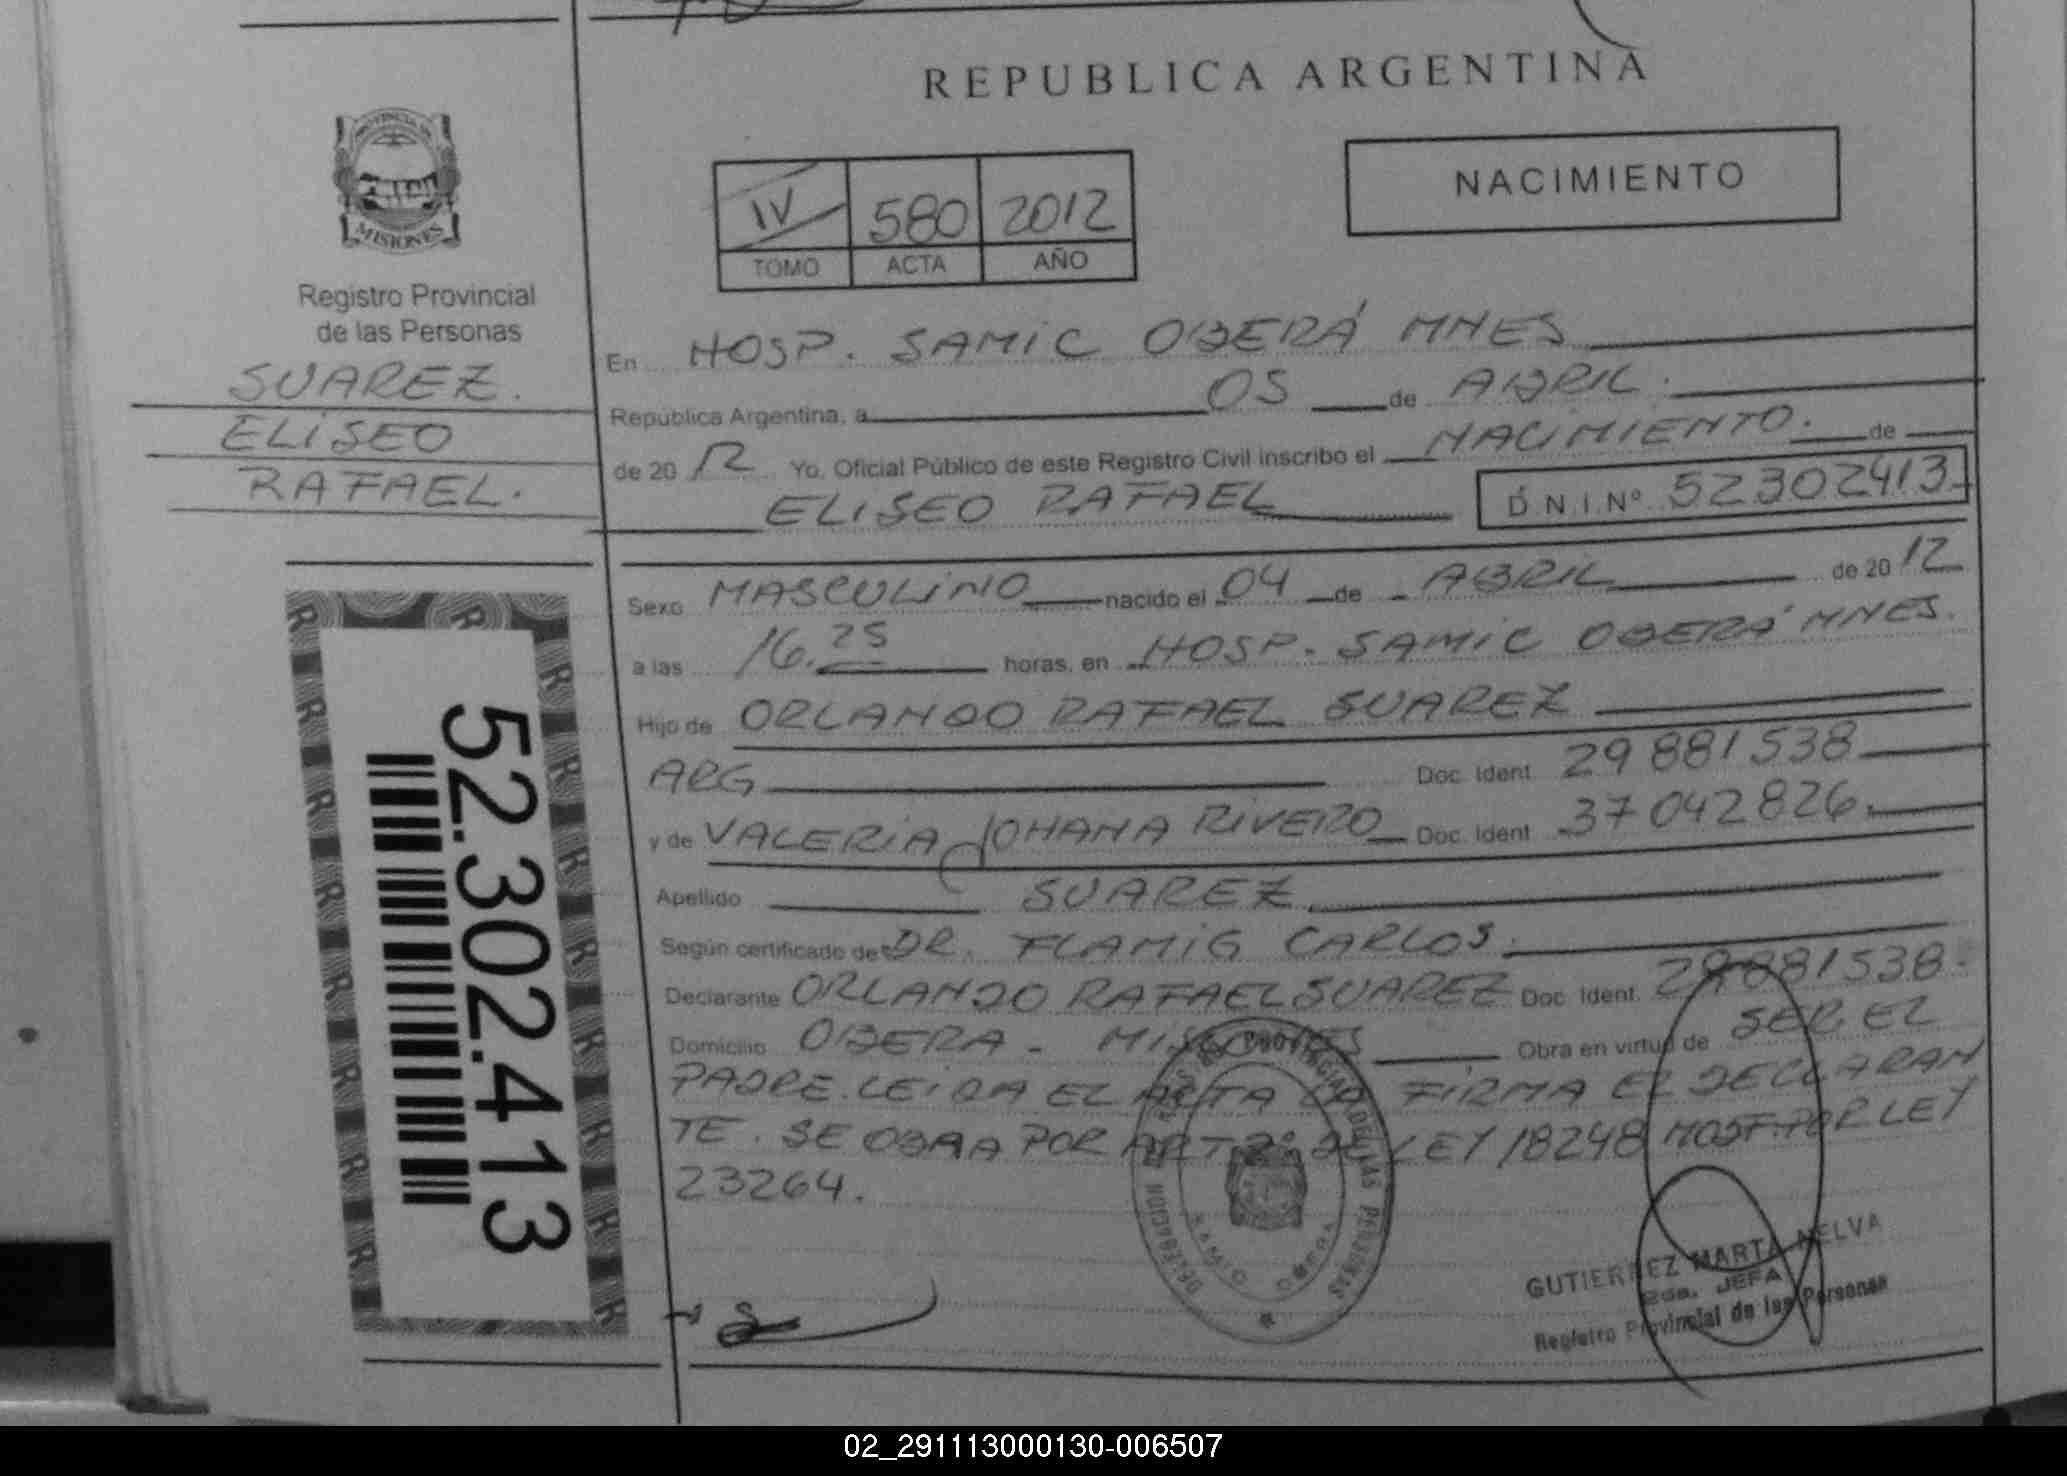 REPUBLICA ARGENTINA
PROVINCIA DE
MISIONES
Registro Provincial
de las Personas
SUAREZ.
ELISEO
RAFAEL.
IV 580 2012
TOMO ACTA AÑO
NACIMIENTO
En HOSP. SAMIC OBERÁ MNES
República Argentina, a 05 de ABRIL.
de 2012 Yo, Oficial Público de este Registro Civil inscribo el NACIMIENTO. de
ELISEO RAFAEL D.N.I.Nº 52302413
Sexo MASCULINO nacido el 04 de ABRIL de 2012
a las 16.25 horas, en HOSP. SAMIC OBERÁ MNES.
Hijo de ORLANDO RAFAEL SUAREZ
ARG Doc. Ident 29 881 538
y de VALERIA JOHANA RIVERO Doc. Ident 37 042 826.
Apellido SUAREZ
Según certificado de DR. FLAMIG CARLOS.
Declarante ORLANDO RAFAEL SUAREZ Doc. Ident. 29881538.
Domicilio OBERA - MISIONES Obra en virtud de SER EL
PADRE. LEIDA EL ACTA LA FIRMA EL DECLARAN
TE. SE OBRA POR ART 2º DE LEY 18248 MODF. POR LEY
23264.
52.302.413
DELEGACION REGISTRO PROVINCIAL DE LAS PERSONAS
SAMIC OBERA
GUTIERREZ MARTA NELVA
2da. JEFA
Registro Provincial de las Personas
02_291113000130-006507